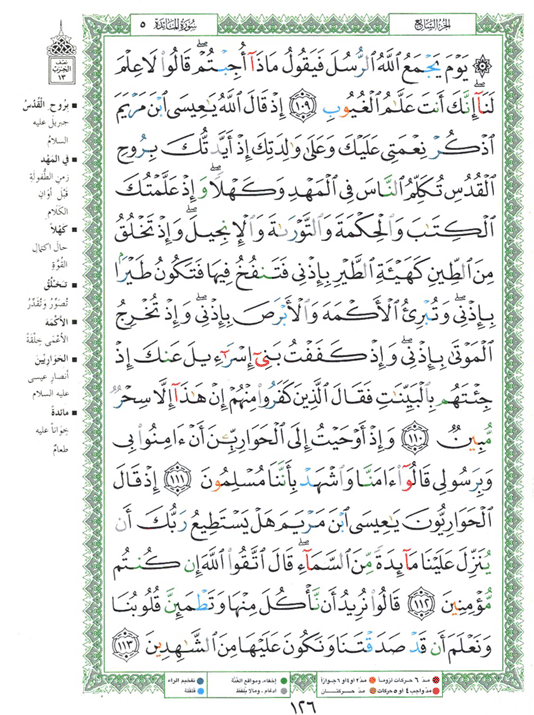 الجزء السابع
سورة المائدة ٥
يَوْمَ يَجْمَعُ اللَّهُ الرُّسُلَ فَيَقُولُ مَاذَا أُجِبْتُمْ قَالُوا لَا عِلْمَ
لَنَا إِنَّكَ أَنتَ عَلَّامُ الْغُيُوبِ ١٠٩ إِذْ قَالَ اللَّهُ يَاعِيسَى ابْنَ مَرْيَمَ
اذْكُرْ نِعْمَتِي عَلَيْكَ وَعَلَىٰ وَالِدَتِكَ إِذْ أَيَّدتُّكَ بِرُوحِ
الْقُدُسِ تُكَلِّمُ النَّاسَ فِي الْمَهْدِ وَكَهْلًا وَإِذْ عَلَّمْتُكَ
الْكِتَابَ وَالْحِكْمَةَ وَالتَّوْرَاةَ وَالْإِنجِيلَ وَإِذْ تَخْلُقُ
مِنَ الطِّينِ كَهَيْئَةِ الطَّيْرِ بِإِذْنِي فَتَنفُخُ فِيهَا فَتَكُونُ طَيْرًا
بِإِذْنِي وَتُبْرِئُ الْأَكْمَهَ وَالْأَبْرَصَ بِإِذْنِي وَإِذْ تُخْرِجُ
الْمَوْتَىٰ بِإِذْنِي وَإِذْ كَفَفْتُ بَنِي إِسْرَائِيلَ عَنكَ إِذْ
جِئْتَهُم بِالْبَيِّنَاتِ فَقَالَ الَّذِينَ كَفَرُوا مِنْهُمْ إِنْ هَٰذَا إِلَّا سِحْرٌ
مُّبِينٌ ١١٠ وَإِذْ أَوْحَيْتُ إِلَى الْحَوَارِيِّينَ أَنْ ءَامِنُوا بِي
وَبِرَسُولِي قَالُوا ءَامَنَّا وَاشْهَدْ بِأَنَّنَا مُسْلِمُونَ ١١١ إِذْ قَالَ
الْحَوَارِيُّونَ يَاعِيسَى ابْنَ مَرْيَمَ هَلْ يَسْتَطِيعُ رَبُّكَ أَن
يُنَزِّلَ عَلَيْنَا مَائِدَةً مِّنَ السَّمَاءِ قَالَ اتَّقُوا اللَّهَ إِن كُنتُم
مُّؤْمِنِينَ ١١٢ قَالُوا نُرِيدُ أَن نَّأْكُلَ مِنْهَا وَتَطْمَئِنَّ قُلُوبُنَا
وَنَعْلَمَ أَن قَدْ صَدَقْتَنَا وَنَكُونَ عَلَيْهَا مِنَ الشَّاهِدِينَ ١١٣
نصف
الحزب
١٣
■ بِرُوحِ الْقُدُسِ
جبريل عليه
السلام
■ في المَهْدِ
زمن الطفولة
قبل أوان
الكلام
■ كهلاً
حال اكتمال
القوّة
■ تخلُق
تُصوِّر وتُقدِّر
■ الأكمه
الأعمى خلقة
■ الحواريّين
أنصار عيسى
عليه السلام
■ مائدة
خواناً عليه
طعام
مدّ ٦ حركات لزوماً مدّ ٢ أو ٤ أو ٦ جوازاً
مدّ واجب ٤ أو ٥ حركات مدّ حركتان
إخفاء، ومواقع الغُنّة
إدغام، وما لا يُلفظ
تفخيم الراء
قلقلة
١٢٦